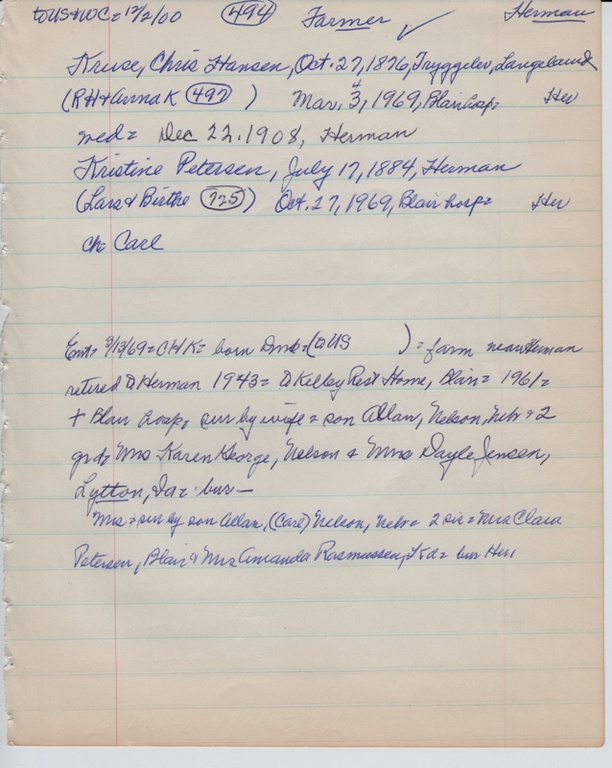 to US & WC = 12/2/00 494 Farmer ✓ Herman
Kruse, Chris Hansen, Oct. 27, 1876, Tryggelev, Langeland
(RH & Anna K 497 ) Mar. 3, 1969, Blair hosp = Her
4
med = Dec 22. 1908, Herman
Kristine Petersen, July 17, 1884, Herman
(Lars & Birthe 725) Oct. 27, 1969, Blair hosp = Her
ch = Carl
Ent = 3/13/69 = CHK = born Dmk = (to US ) = farm near Herman
retired to Herman 1943 = to Kelby Rest Home, Blair = 1961 =
+ Blair hosp, sur by wife = son Allan, Nelson, Neb & 2
grd, Mrs Karen George, Nelson & Mrs Dayle Jensen,
Lytton, Ia = bur —
Mrs = sur by son Allan, (Carl) Nelson, Neb = 2 sis = Mrs Clara
Petersen, Blair & Mrs Amanda Rasmussen, = bur Her